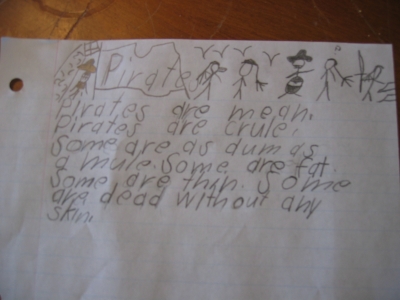 Pirate
Pirates are mean.
Pirates are crule.
Some are as dum as
a mule. Some are fat.
Some are thin. Some
are dead without any
skin.